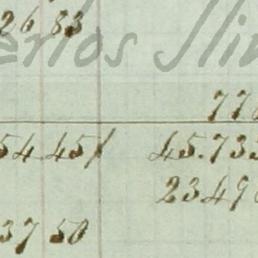 26 83
erlos Ili
77
54 45/ 45.73
2349
37 50